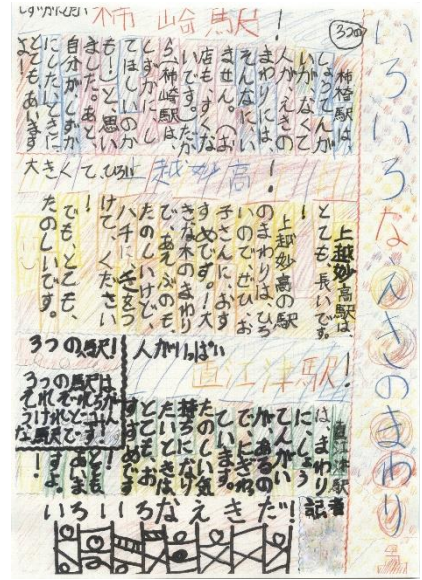 いろいろなえきのまわり
柿崎駅
柿崎駅は、
しょうてんが
いが、なくて
人が、えきの
まわりには、
そんなにい
ません。(お
店も、すくな
いです。)だか
ら、柿崎駅は、
しずかに、し
てほしいのか
も!と思い
ました。あと、
自分がしずか
にしたいときに
とても、あいます
よ!
大きくて、ひろい
上越妙高
上越妙高駅は、
とても、長いです。
!
上越妙高の駅
のまわりは、ひろ
いのでぜひ、お
子さんに、おす
すめです!大
きな木のまわり
で、あそぶのも、
たのしいけど、
ハチに気をつ
けて、ください
でも、とても、
たのしいです。
人がいっぱい
直江津駅
記者
直江津駅
は、まわり
に、しょう
てんがい
が、あるの
で、にぎわ
っています。
たのしい気
持ちになり
たいときは、
とても、お
すすめです
3つの駅!
いろいろなえきだ!!